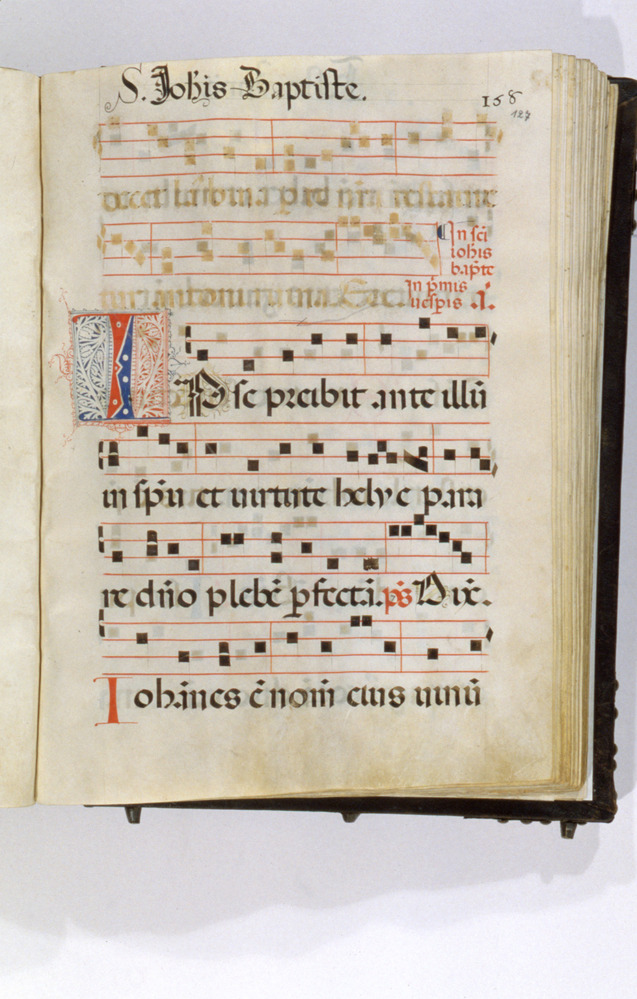 S. Iohis Baptiste.
158
127
In sci
iohis
bapte
In pmis
uespis .i.
Ipse preibit ante illū
in spū et uirtute helye para
re dño plebē pfectā. ps Dix̄.
Iohānes ē nom̄ eius uinū